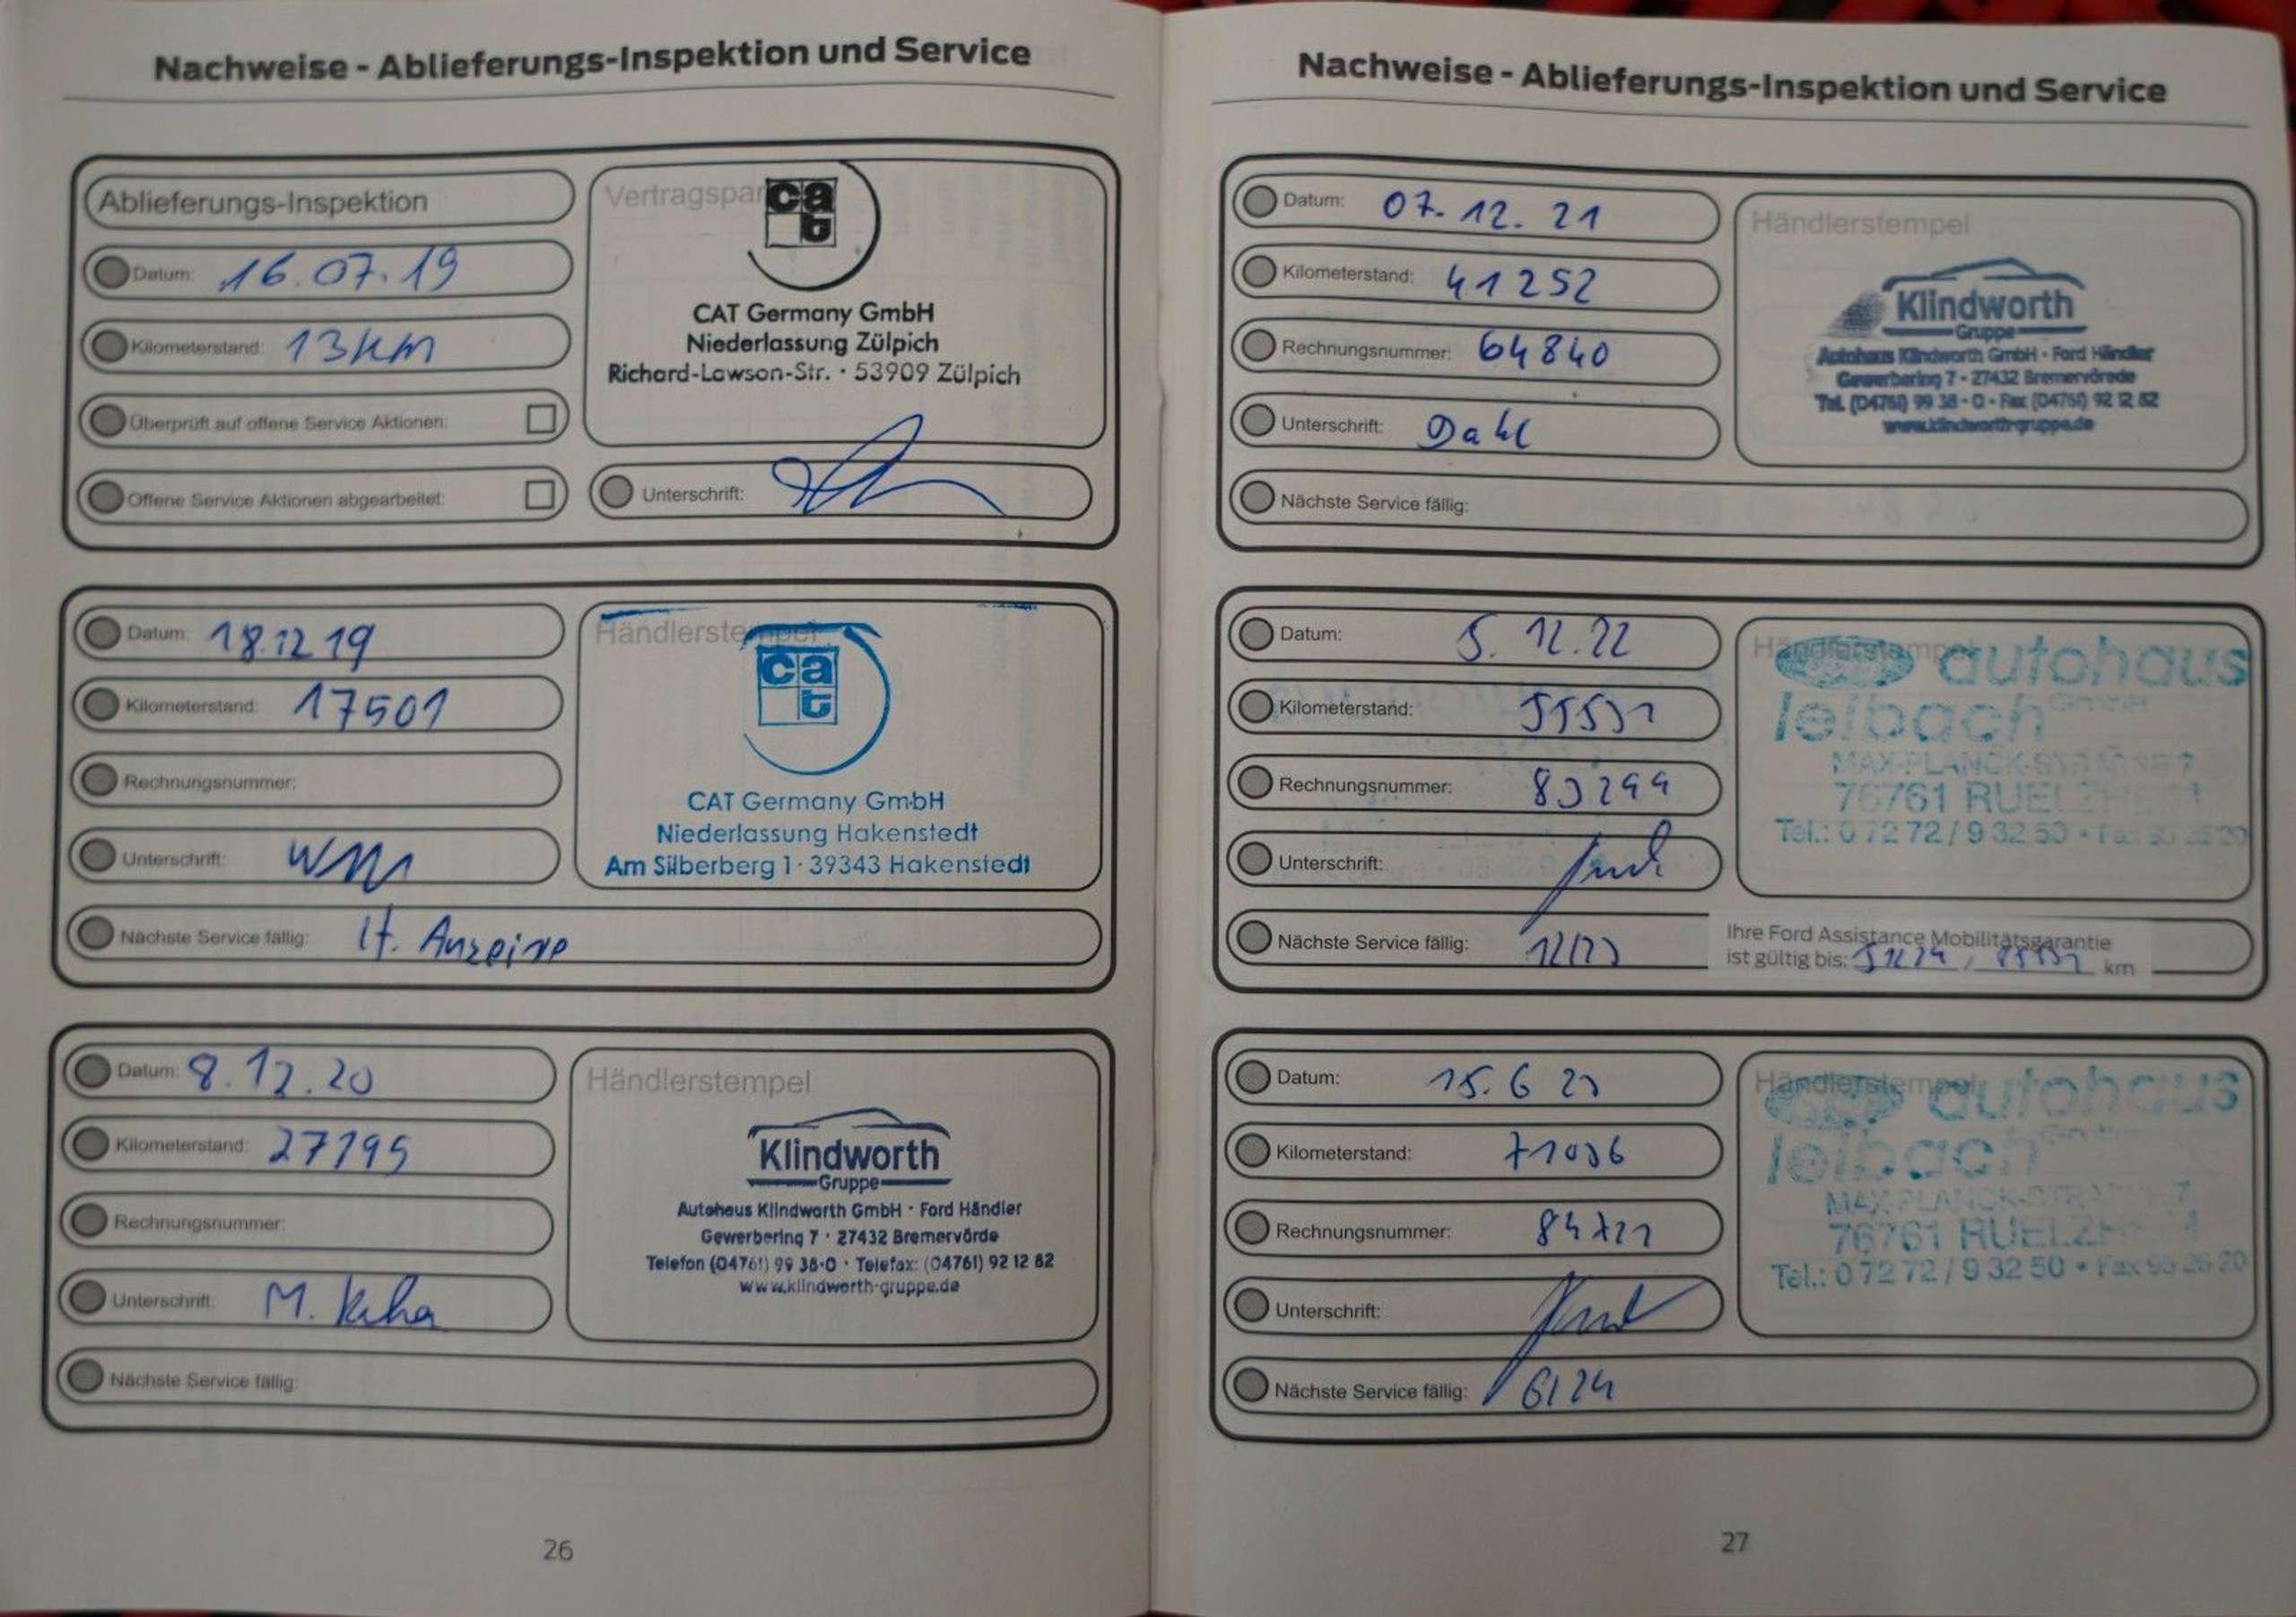 Nachweise - Ablieferungs-Inspektion und Service
Ablieferungs-Inspektion
Datum: 16.07.19
Kilometerstand: 13km
Überprüft auf offene Service Aktionen:
Offene Service Aktionen abgearbeitet:
cat
CAT Germany GmbH
Niederlassung Zülpich
Richard-Lawson-Str. · 53909 Zülpich
Unterschrift:
Datum: 18.12 19
Kilometerstand: 17501
Rechnungsnummer:
Unterschrift:
Nächste Service fällig: lt. Anzeige
Händlerstempel
cat
CAT Germany GmbH
Niederlassung Hakenstedt
Am Silberberg 1 · 39343 Hakenstedt
Datum: 8.12.20
Kilometerstand: 27195
Rechnungsnummer:
Unterschrift: M.
Nächste Service fällig:
Händlerstempel
Klindworth
Gruppe
Autohaus Klindworth GmbH · Ford Händler
Gewerbering 7 · 27432 Bremervörde
Telefon (04761) 99 38-0 · Telefax: (04761) 92 12 82
www.klindworth-gruppe.de
26
Nachweise - Ablieferungs-Inspektion und Service
Datum: 07.12.21
Kilometerstand: 41252
Rechnungsnummer: 64840
Unterschrift: Dahl
Nächste Service fällig:
Händlerstempel
Klindworth
Gruppe
Autohaus Klindworth GmbH · Ford Händler
Gewerbering 7 · 27432 Bremervörde
Tel. (04761) 99 38 - 0 · Fax (04761) 92 12 82
www.klindworth-gruppe.de
Datum: 5.12.22
Kilometerstand: 55531
Rechnungsnummer: 83299
Unterschrift:
Nächste Service fällig: 12/23
Ihre Ford Assistance Mobilitätsgarantie
ist gültig bis: km
Händlerstempel
autohaus
leibach GmbH
MAX-PLANCK-STR
76761 RUELZHEIM
Tel.: 0 72 72 / 9 32 50 · Fax
Datum: 15.6 23
Kilometerstand: 71036
Rechnungsnummer:
Unterschrift:
Nächste Service fällig: 6/24
Händlerstempel
autohaus
leibach
MAX-PLANCK-STR 7
76761 RUELZHEIM
Tel.: 0 72 72 / 9 32 50 · Fax 93 25 20
27